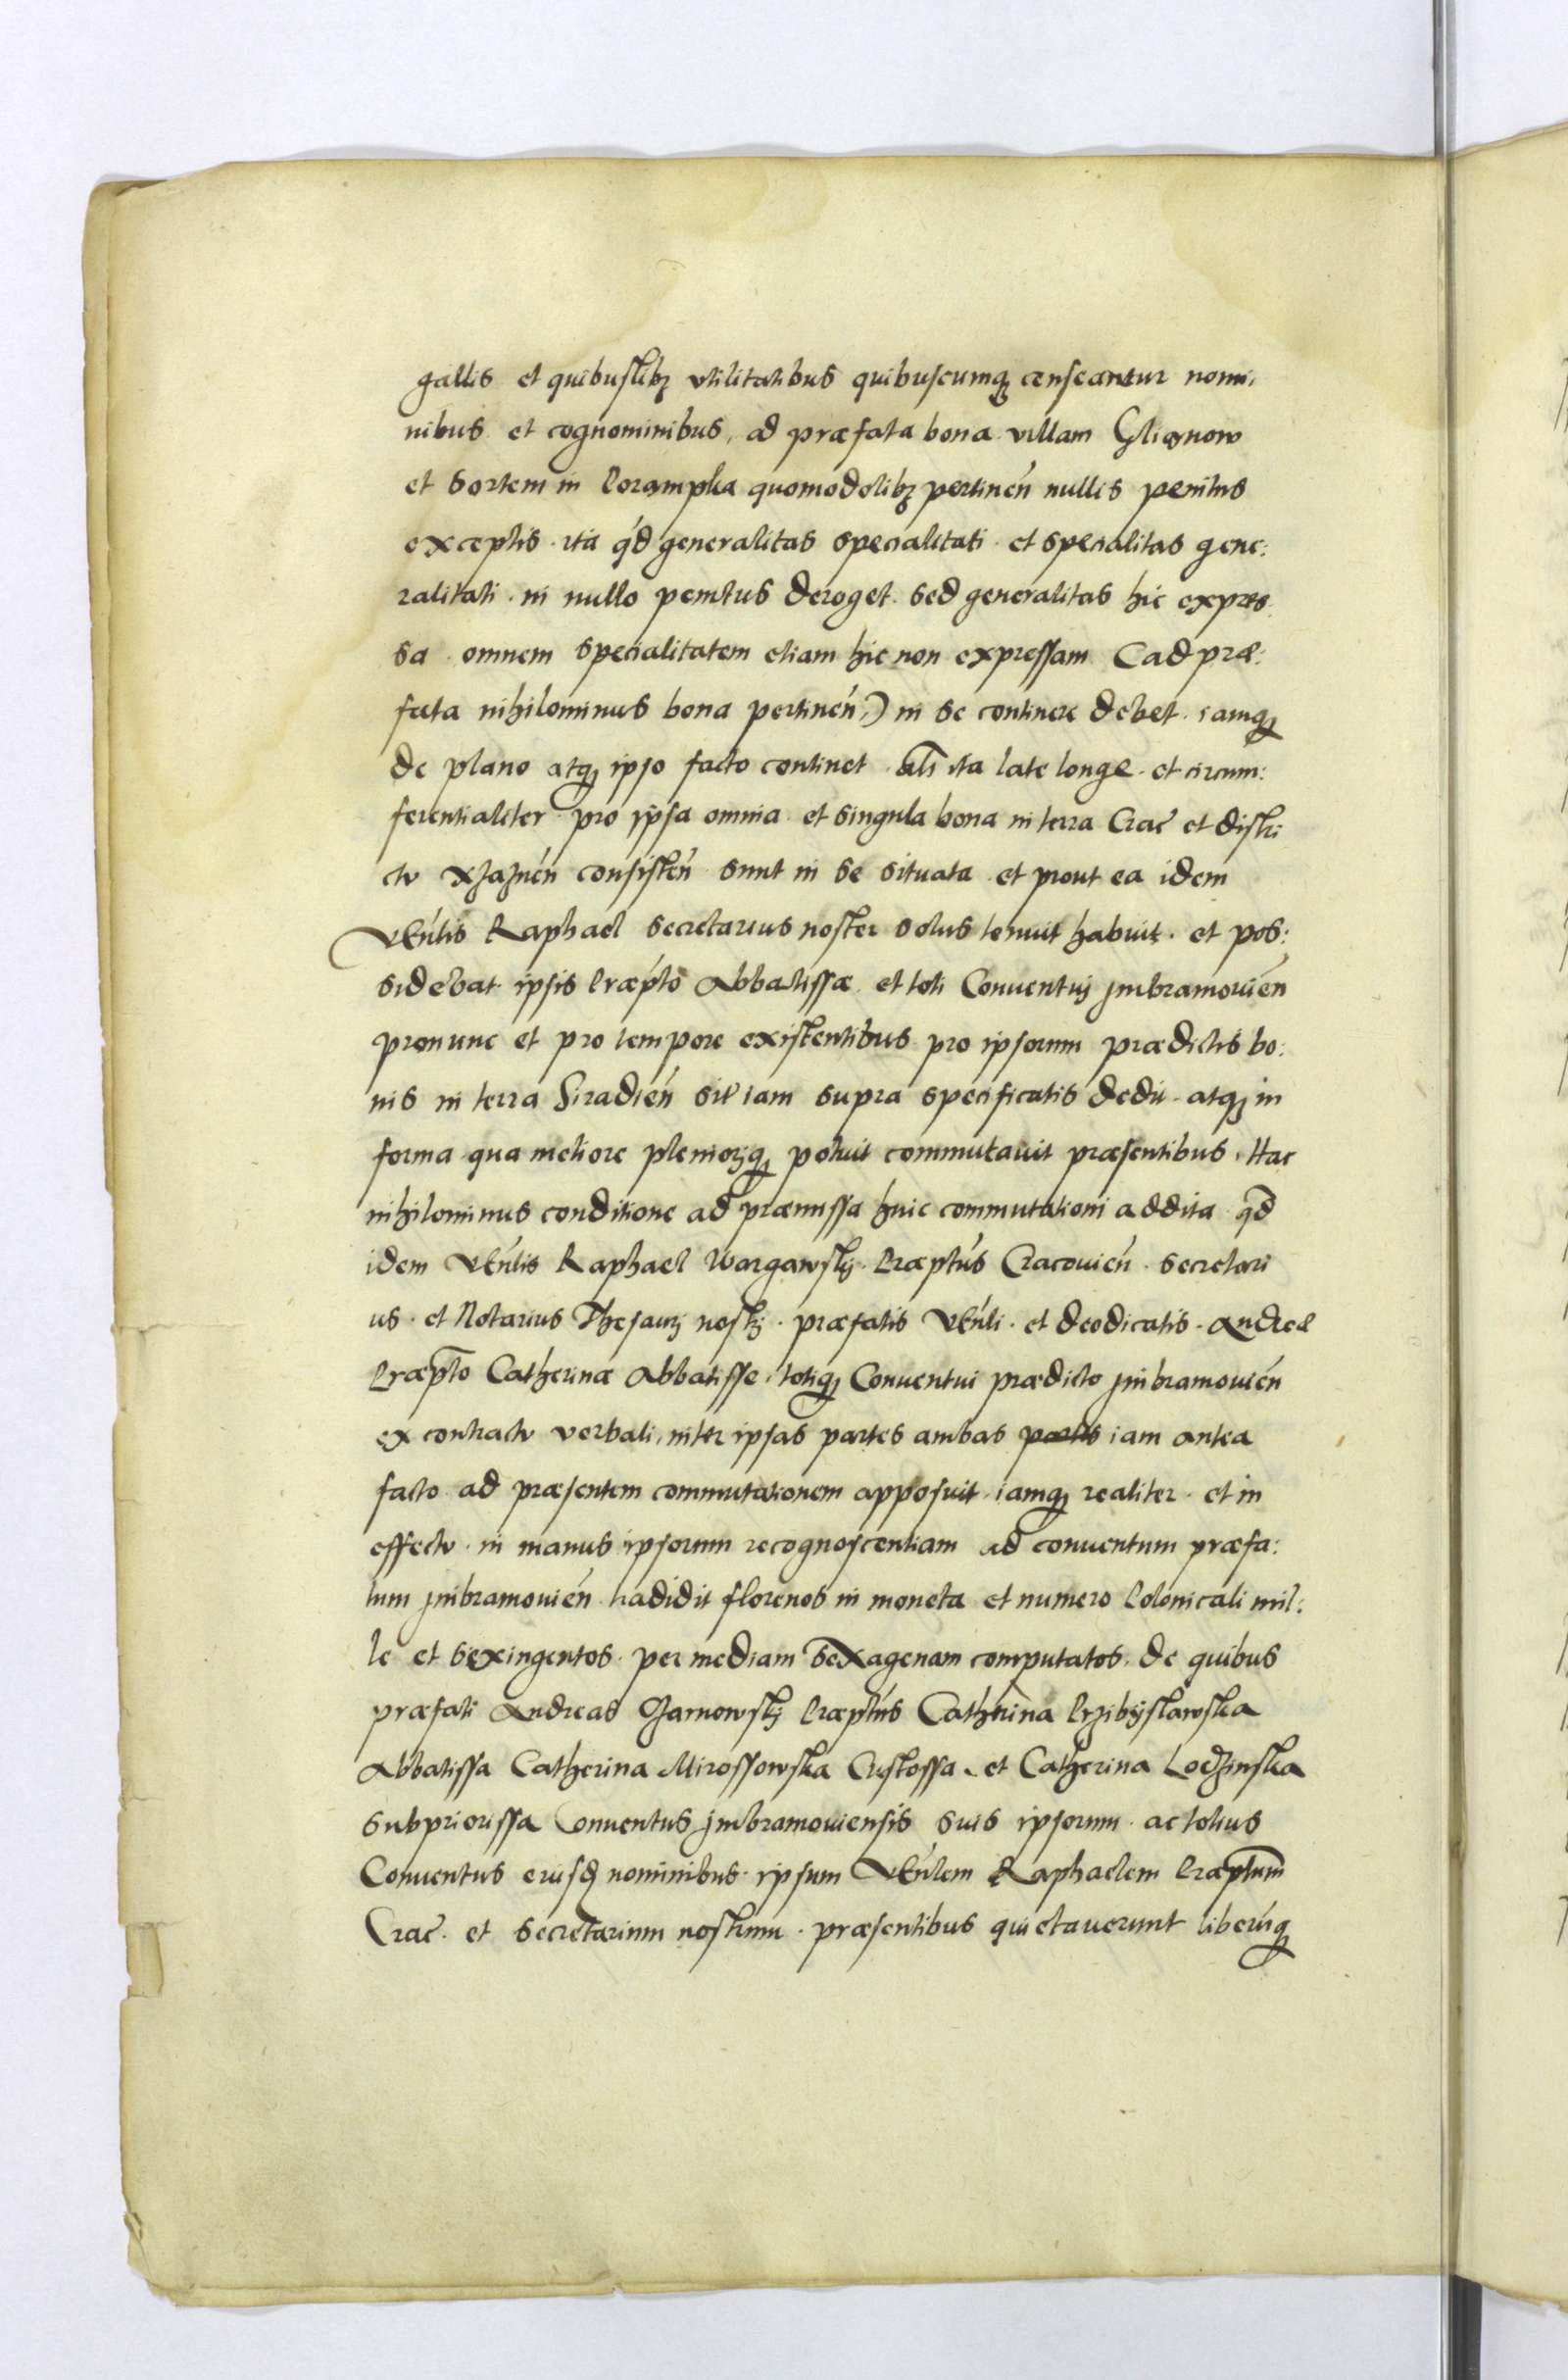 gallis et quibuslibꝫ vtilitatibus quibuscumqꝫ censeantur nomi,
nibus et cognominibus, ad præfata bona villam Glianow
et sortem in Porąmpka quomodolibꝫ pertineń nullis penitus
exceptis. ita q́d generalitas specialitati. et specialitas gene:
ralitati. in nullo penitus deroget. sed generalitas hic expres
sa omnem specialitatem etiam hic non expressam (ad præ:
fata nihilominus bona pertineń,) in se continere debet. iamqꝫ
de plano atqꝫ ipso facto continet ita late longe. et circum:
ferentialiter pro ipsa omnia et singula bona in terra Crac̄ et distri
ctu Xząznen̄ consisteń sunt in se situata et prout ea idem
Veńlis Raphael secretarius noster solus tenuit habuit. et pos:
sidebat ipsis Præpto Abbatissæ et toti Conuentuj Jmbramouień
pronunc et pro tempore existentibus pro ipsorum prædictis bo:
nis in terra Siradień sit̄ iam supra specificatis dedit. atqꝫ in
forma qua meliore pleniorjqꝫ potuit commutauit præsentibus. Hac
nihilominus conditione ad præmissa huic commutationi addita qd̄
idem Veńlis Raphael Wargawskj. Præptus Cracouień. secretari
us. et Notarius Thesaurj nostrj. præfatis Veńli. et deodicatis. Andreæ
Præpto Catherinæ Abbatisse. totiqꝫ Conuentui prædicto Jmbramouień
ex contractu verbali, inter ipsas partes ambas partes iam antea
facto ad præsentem commutationem apposuit. iamqꝫ realiter. et in
effectu. in manus ipsorum recognoscentiam ad conuentum præfa:
tum Jmbramouień tradidit florenos in moneta et numero Polonicali mil:
le et sexingentos. per mediam sexagenam computatos. de quibus
præfati Andreas Czarnowskj Præptus Catherina Przibÿslawska
Abbatissa Catherina Mirossowska Custossa. et Catherina Lodzinska
subpriorissa Conuentus Jmbramouiensis suis ipsorum. ac totius
Conuentus eiusd nominibus. ipsum Veńlem Raphaelem Præptum
Crac̄. et secretarium nostrum. præsentibus quietauerunt liberúqꝫ